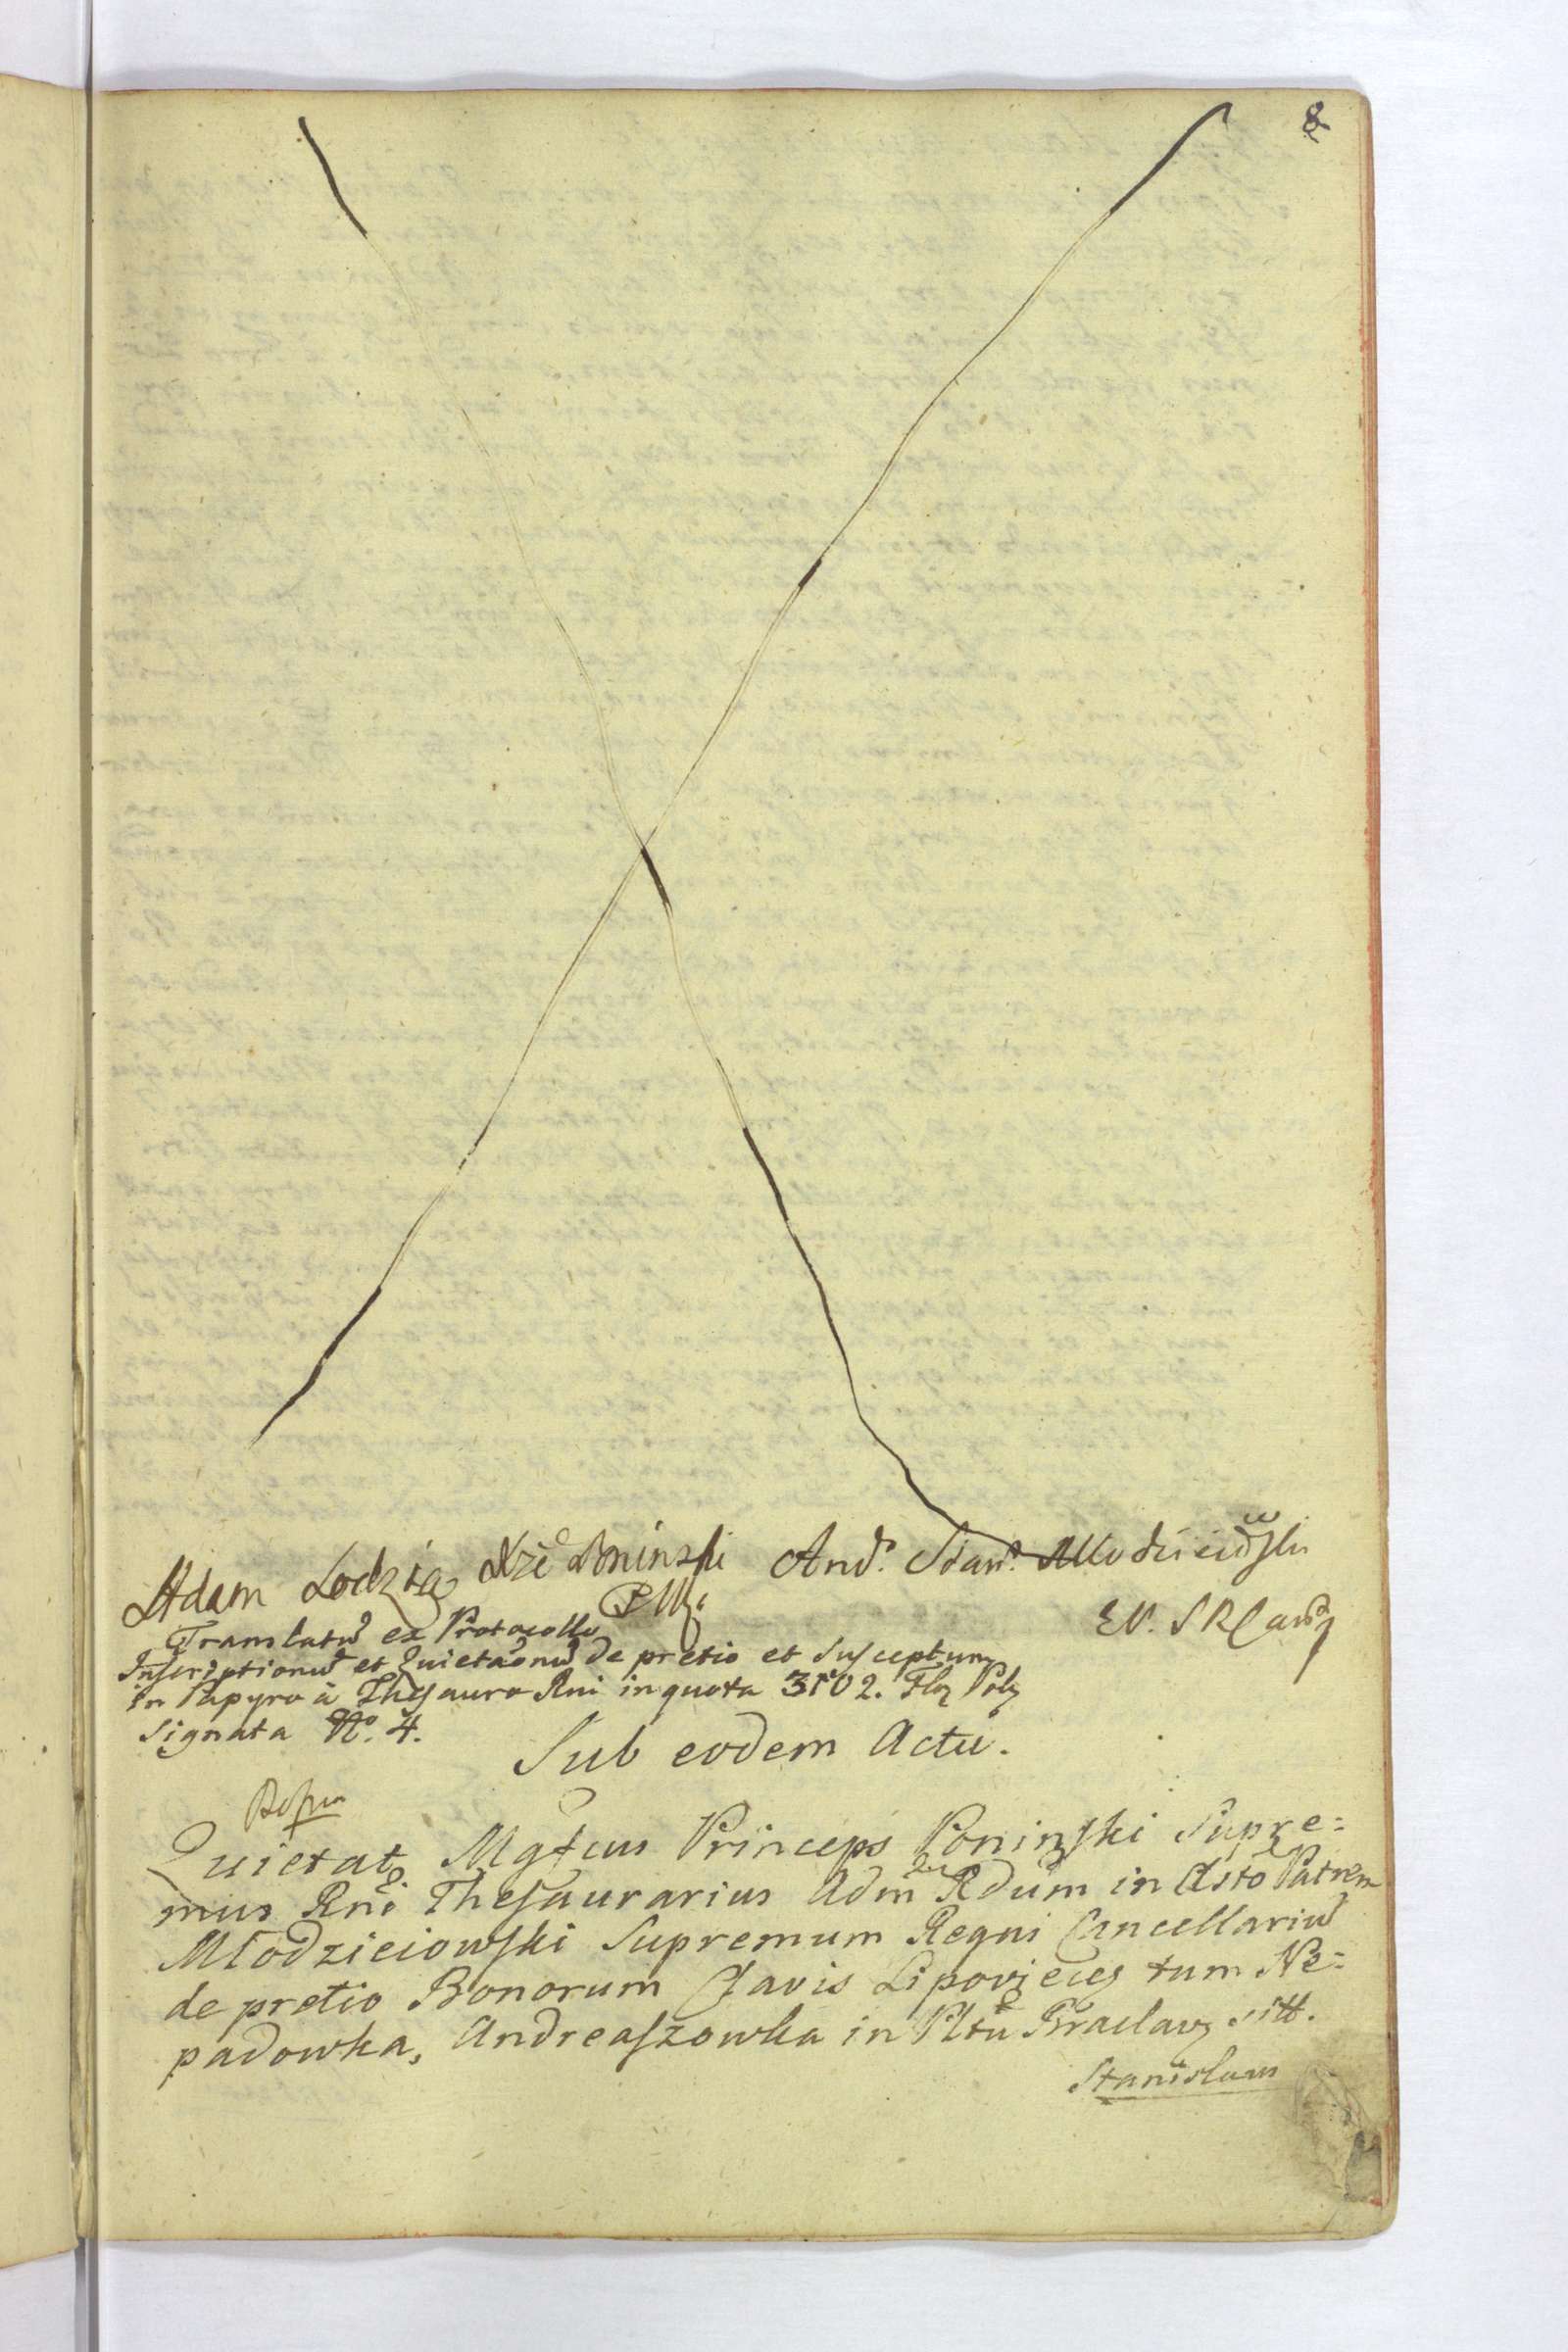 8
Adam Lodzia Xże Poninski And. Stan. Młodzieiowski
PWK.
Translatū ex Protocollo
Inscriptionū et Quietaōnū de pretio et Susceptum
in Papyro à Thesauro Rni in quota 3102. Flor Pol
signata No. 4.
Sub eodem Actu.
Quietatō
Mgfcus Princeps Poninski Supre=
mus Rni Thesaurarius Adm Rdum in Chsto Patrem
Młodzieiowski Supremum Regni Cancellariū
de pretio Bonorum Clavis Lipoviecg tum Ne=
padowka, Andreaszowka in Pltu Braclav sitt.
Stanislaus